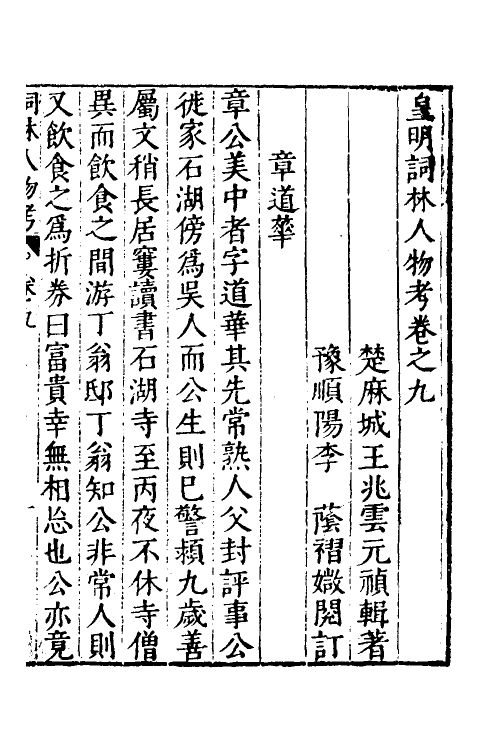 皇明詞林人物考卷之九
楚麻城王兆雲元禎輯著
豫順陽李　蔭襟嫩閱訂
章道華
章公美中者字道華其先常熟人父封評事公
徙家石湖傍爲吳人而公生則已警頴九歲善
屬文稍長居寠讀書石湖寺至丙夜不休寺僧
異而飲食之間游丁翁邸丁翁知公非常人則
又飲食之爲折券曰富貴幸無相忩也公亦竟
詞林人物考　卷之九　一